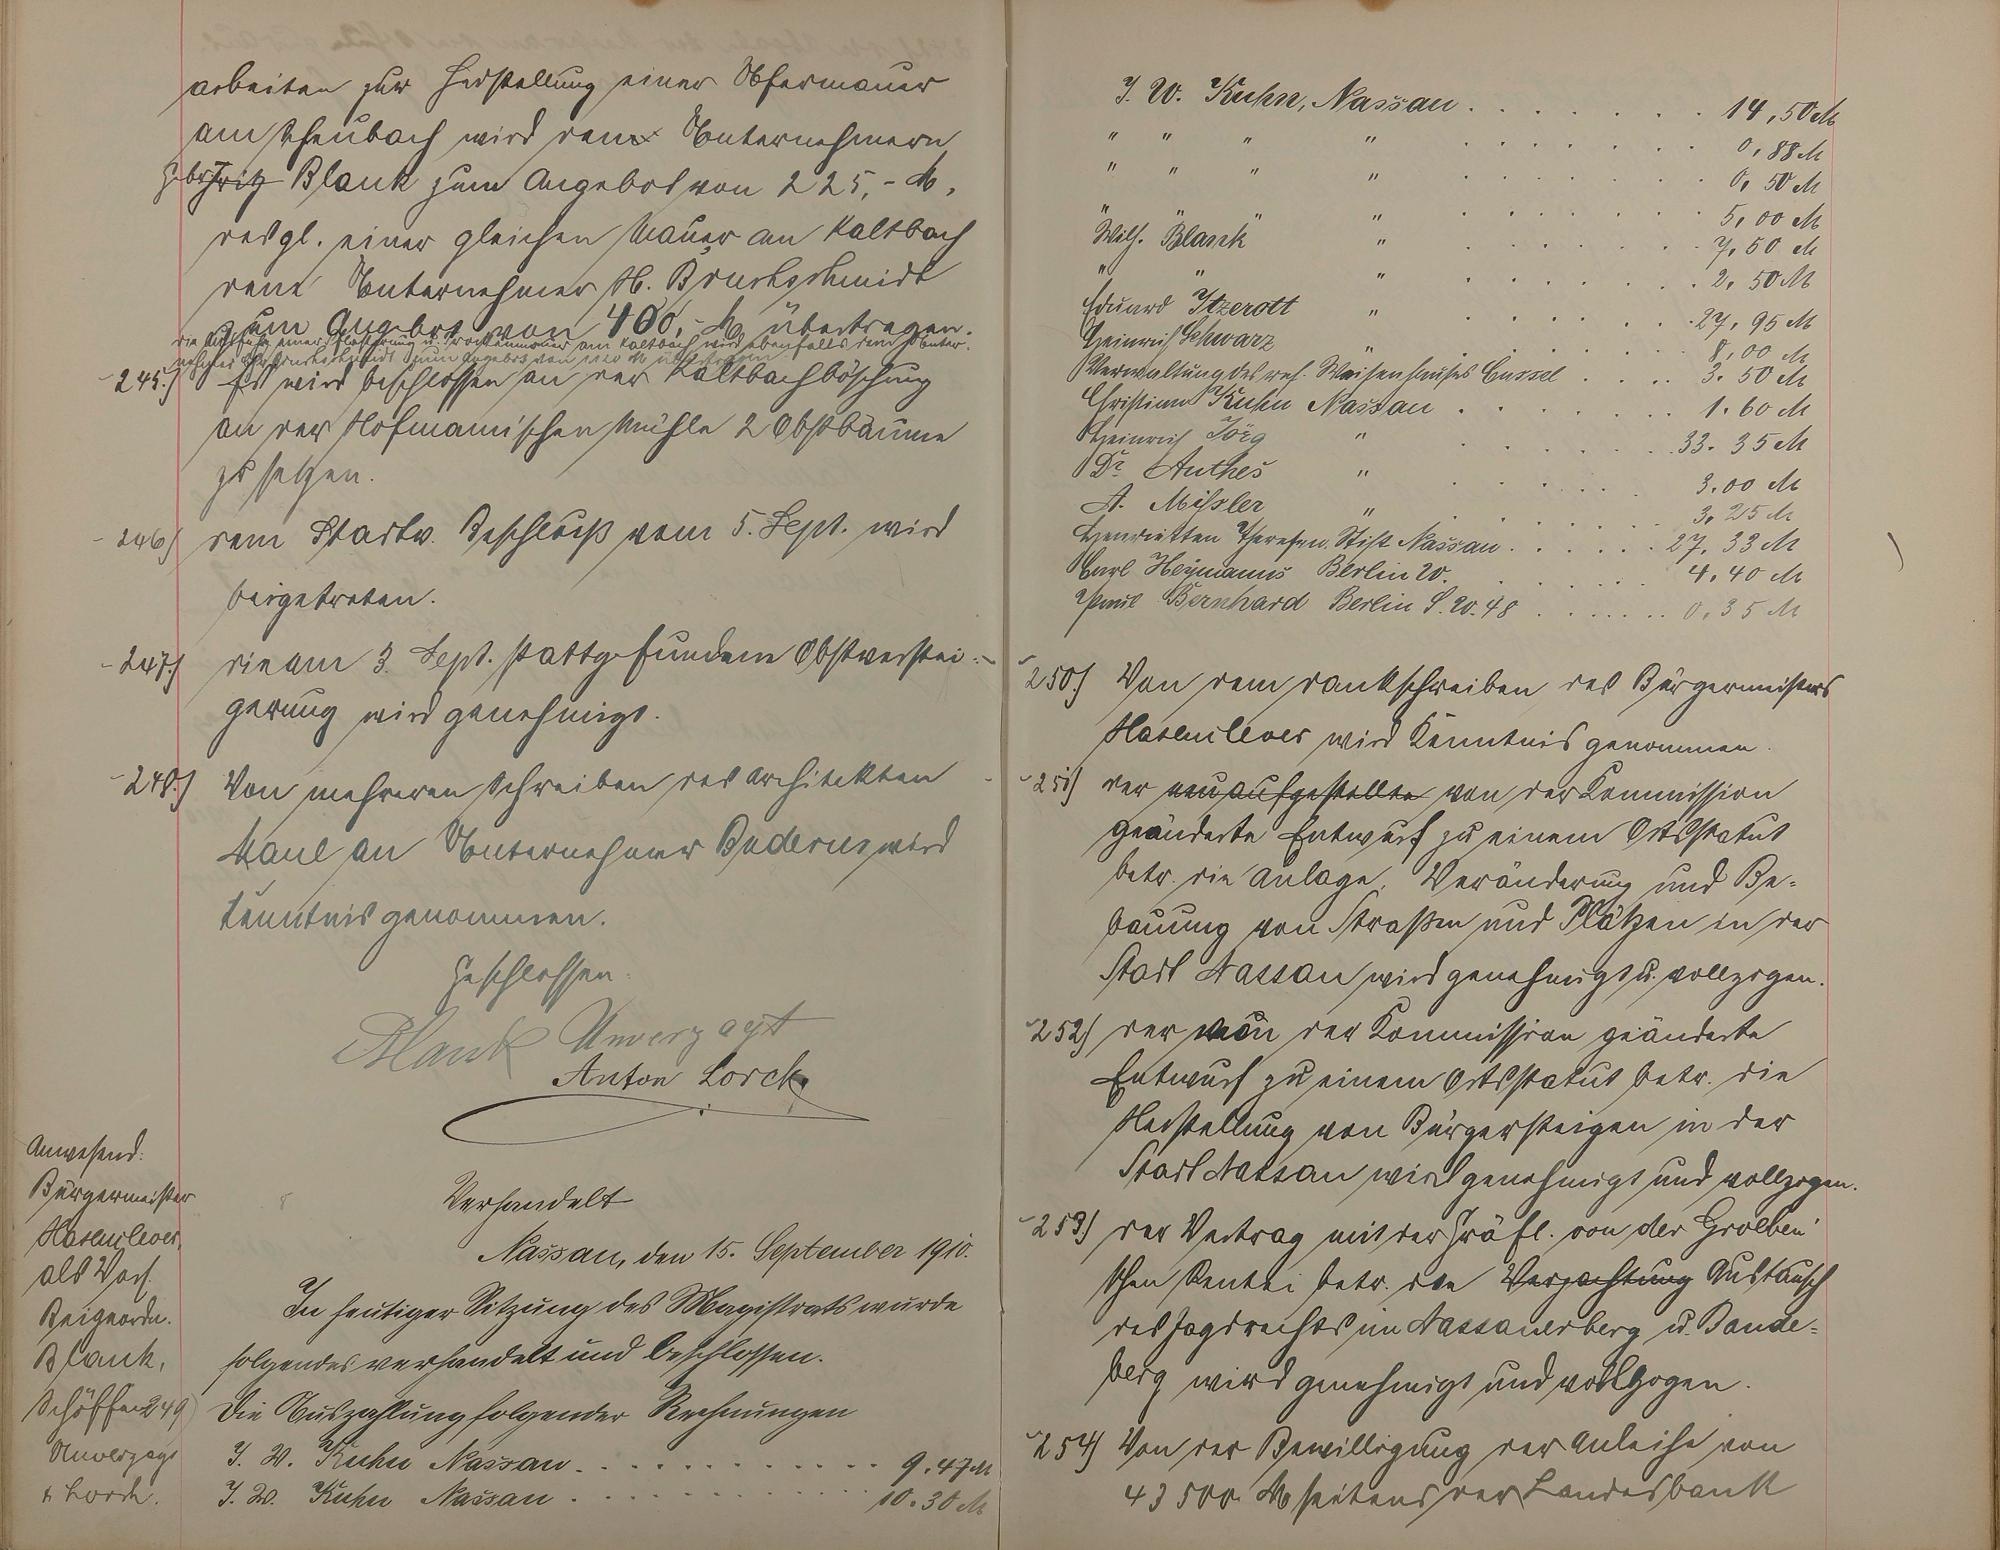 arbeiten zur Herstellung einer Ufermauer
am Scheubach wird dem Unternehmern
Gebr. Fritz Blank zum Angebot von 225,- M,
desgl. einer gleichen Mauer am Kaltbach
dem Unternehmer H. Bruchschmidt
zum Angebot von 400,- M übertragen.
die Ausführung einer Pflasterung u. Trockenmauer am Kaltbach wird ebenfalls dem Unter-
nehmer Bruchschmidt zum Angebot von M übertragen
245.) Es wird beschlossen an der Kaltbachböschung
an der Hofmannischen Mühle 2 Obstbäume
zu setzen.
246) dem Stadtv. Beschluß vom 5. Sept. wird
beigetreten.
247.) die am 3. Sept. stattgefundene Obstverstei-
gerung wird genehmigt.
248.) Von mehreren Schreiben des Architekten
Maul an Unternehmer Buderus wird
Kenntnis genommen.
Geschlossen.
Blank Unverzagt
Anton Lorch
Anwesend:
Bürgermeister
Hasenclever,
als Vors.
Beigeordn.
Blank,
Schöffen
Unverzagt
& Lorch.
Verhandelt
Nassau, den 15. September 1910.
In heutiger Sitzung des Magistrats wurde
folgendes verhandelt und beschlossen.
249) Die Auszahlung folgender Rechnungen
J. W. Kuhn Nassau . . . . . . 9.47 M
J. W. Kuhn Nassau . . . . . . 10.30 M
J. W. Kuhn, Nassau . . . . . . 14,50 M
" " " " . . . . . . 0,88 M
" " " " . . . . . . 0,50 M
" " " " . . . . . . 5,00 M
Wilh. Blank " . . . . . . 7,50 M
" " " . . . . . . 2,50 M
Eduard Itzerott " . . . . . . 27,95 M
Heinrich Schwarz " . . . . . . 8,00 M
Verwaltung des ref. Waisenhauses Cassel . . . . 3.50 M
Christian Kuhn Nassau . . . . . . 1.60 M
Heinrich Jörg " . . . . . . 33.35 M
Dr. Anthes " . . . . . . 3.00 M
A. Missler " . . . . . . 3,25 M
Henrietten Theresen Stift Nassau . . . . . . 27,33 M
Carl Heymanns Berlin W. . . . . . 4.40 M
Paul Bernhard Berlin S.W. 48 . . . . . . 0.35 M
250.) Von dem Dankschreiben des Bürgermeisters
Hasenclever wird Kenntnis genommen.
251) der neu aufgestellte von der Kommission
geänderte Entwurf zu einem Ortsstatut
betr. die Anlage, Veränderung und Be-
bauung von Straßen und Plätzen in der
Stadt Nassau wird genehmigt u. vollzogen.
252) der von der Kommission geänderte
Entwurf zu einem Ortsstatut betr. die
Herstellung von Bürgersteigen in der
Stadt Nassau wird genehmigt und vollzogen.
253) der Vertrag mit der Gräfl. von der Groeben'
schen Rentei betr. den Verpachtung Austausch
des Jagdrechts im Nassauerberg u. Bande-
berg wird genehmigt und vollzogen.
254) Von der Bewilligung der Anleihe von
43500 M seitens der Landesbank